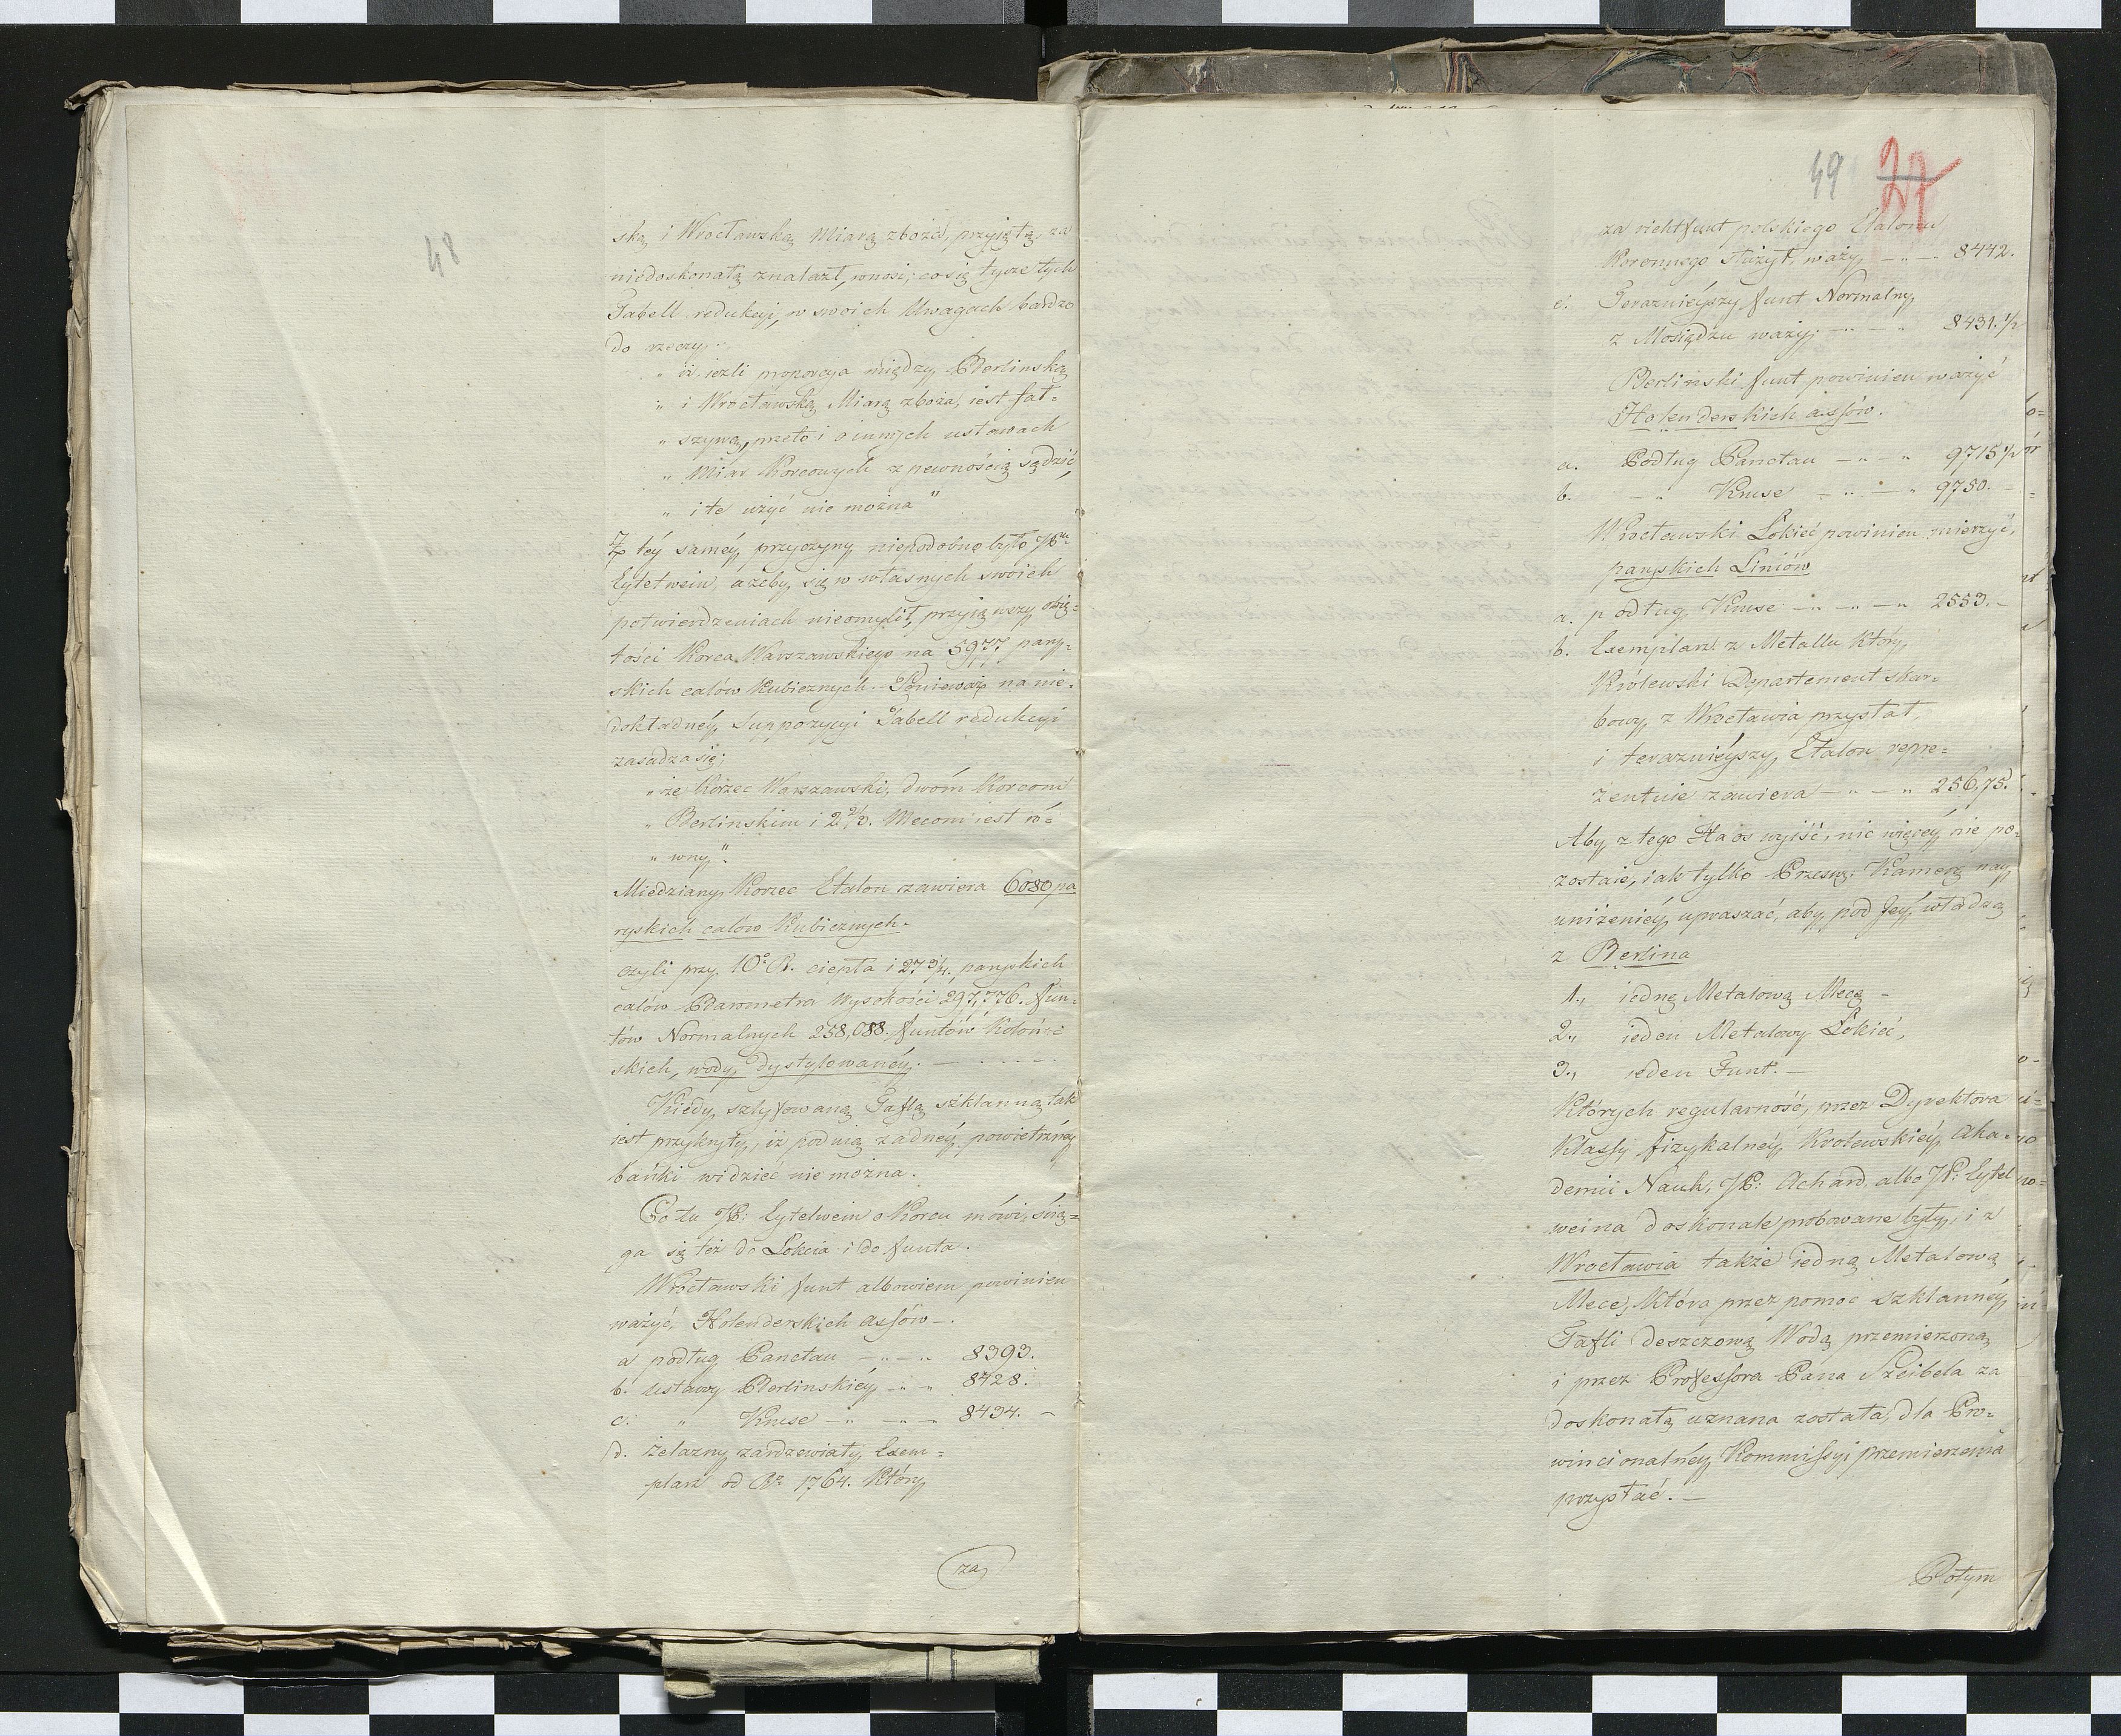 48
ską i Wrocławską Miarą zboża, przyiętą za
niedoskonałą znalazł, wnosi, co się tycze tych
Tabell redukcyi, w swoich Uwagach bardzo
do rzeczy:
„ iż ieżli proporcya między Berlinską
„ i Wrocławską Miarą zboża, iest fał=
„ szywą, przeto i o innych ustawach
„ Miar Korcowych z pewnością sądzić,
„ i te użyć nie można"
Z téy saméy przyczyny niepodobno było JPu
Eytelwein, ażeby się w własnych swoich
potwierdzeniach nieomylił, przyiąwszy obię=
tości Korca Warszawskiego na 5977 pary=
skich calów Kubicznych. Ponieważ na nie=
dokładnéy Suppozycyi Tabell redukcyi
zasadza się;
„ że Korzec Warszawski, dwóm Korcom
„ Berlinskim i 2 2/3. Mecom iest ró=
„ wny".
Miedziany Korzec Etalon zawiera 6080 pa
ryskich calów Kubicznych.
czyli przy 10° R. ciepła i 27 3/4. paryskich
calów Barometra Wysokości 297,776. fun=
tów Normalnych 258,088. funtów Koloń=
skich, wody dystylowanéy.
Kiedy szlyfowaną Taflą szklanną tak
iest przykryty, iż pod nią żadnéy powietrznéy
bańki widzieć nie można.
Co tu JP: Eytelwein o Korcu mówi, ścią=
ga się też do Łokcia i do funta.
Wrocławski funt albowiem powinien
ważyć, Holenderskich assów —.
a podług Panctau — „ — „ 8393.
b. Ustawy Berlinskiéy — „ — „ 8428.
c. „ Kruse — „ — „ — „ 8434. —
d. Żelazny zardzewiały Exem=
plarz od Ao 1764. Który
za
49 27
za richtfunt polskiego Etalonu
Koronnego służył, waży — „ — „ 8442.
e. Teraznieyszy funt Normalny
z Mosiądzu waży — „ — „ 8431. 1/2
Berlinski funt powinien ważyć
Holenderskich assów.
a. Podług Panctau — „ — „ 9715 1/2
b. — „ Kruse — „ — „ 9750. —
Wrocławski Łokieć powinien mierzyć,
paryskich Liniów
a. podług Kruse — „ — „ — „ 2553. —
b. Exemplarz z Metallu Który
Królewski Departement skar=
bowy z Wrocławia przysłał,
i teraznieyszy Etalon repre=
zentuie zawiera — „ — „ 256,75.
Aby z tego Haos wyiść, nic więcéy nie po=
zostaie, iak tylko Przesw: Kamerę nay
uniżeniéy upraszać, aby pod Jéy władzą
z Berlina
1., iedną Metalową Mecę —
2., ieden Metalowy Łokieć,
3., ieden Funt. —
Których regularność, przez Dyrektora
Klassy fizykalnéy Krolewskiéy Aka=
demii Nauk, JP: Achard, albo JP: Eytel
weina doskonale probowane były, i z
Wrocławia także iedną Metalową
Mecę, Która przez pomoc szklannéy
Tafli deszczową Wodą przemierzona
i przez Professora Pana Szeibela za
doskonałą uznana została, dla Pro=
wincionalnéy Kommissyi przemierzenia
przysłać. —
Potym